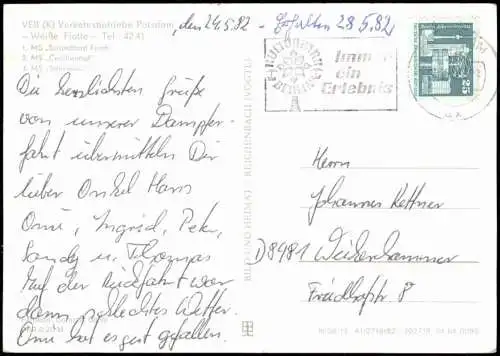 VEB (K) Verkehrsbetriebe Potsdam
– Weiße Flotte – Tel. 42 41
1. MS „Sanssouci"
2. MS „Cecilienhof"
3. MS
, den 24.5.82 – Erhalten 28.5.82
KULTURPARK
BERLIN
Immer
ein
Erlebnis
25
Die herzlichsten Grüße
von unserer Dampfer-
fahrt übermitteln Dir
lieber Onkel Hans
Omi, Ingrid, Peter,
Sandy u. Thomas
Auf der Rückfahrt war
dann schlechtes Wetter.
Omi hat es gut gefallen.
BILD UND HEIMAT REICHENBACH (VOGTL)
Herrn
Johannes Kettner
D 8481 Weiherhammer
Friedhofstr. 8